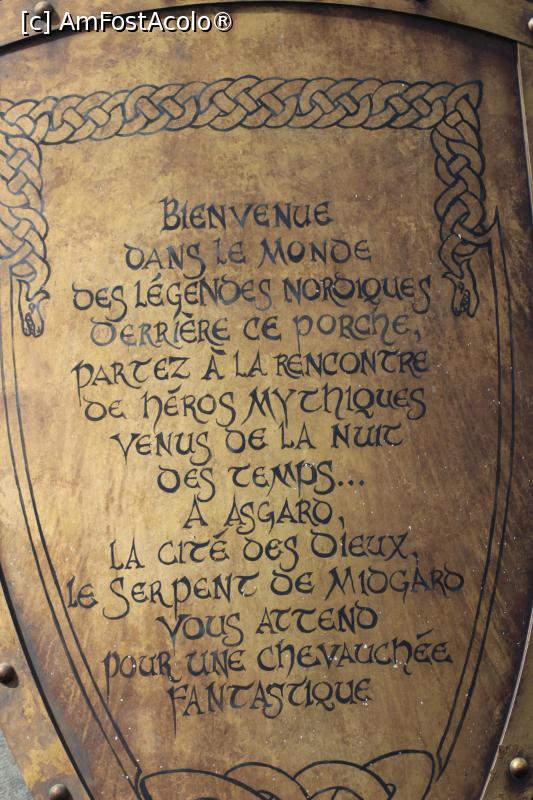 [c] AmFostAcolo®
BIENVENUE
DANS LE MONDE
DES LÉGENDES NORDIQUES
DERRIÈRE CE PORCHE,
PARTEZ À LA RENCONTRE
DE HÉROS MYTHIQUES
VENUS DE LA NUIT
DES TEMPS...
A ASGARD,
LA CITÉ DES DIEUX,
LE SERPENT DE MIDGARD
VOUS ATTEND
POUR UNE CHEVAUCHÉE
FANTASTIQUE